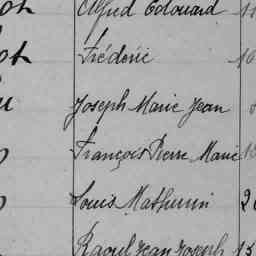 ot Alfred Edouard 11
ot Frédéric 10
Joseph Marie Jean
François Pierre Marie
Louis Mathurin 2
Raoul Jean Joseph 15